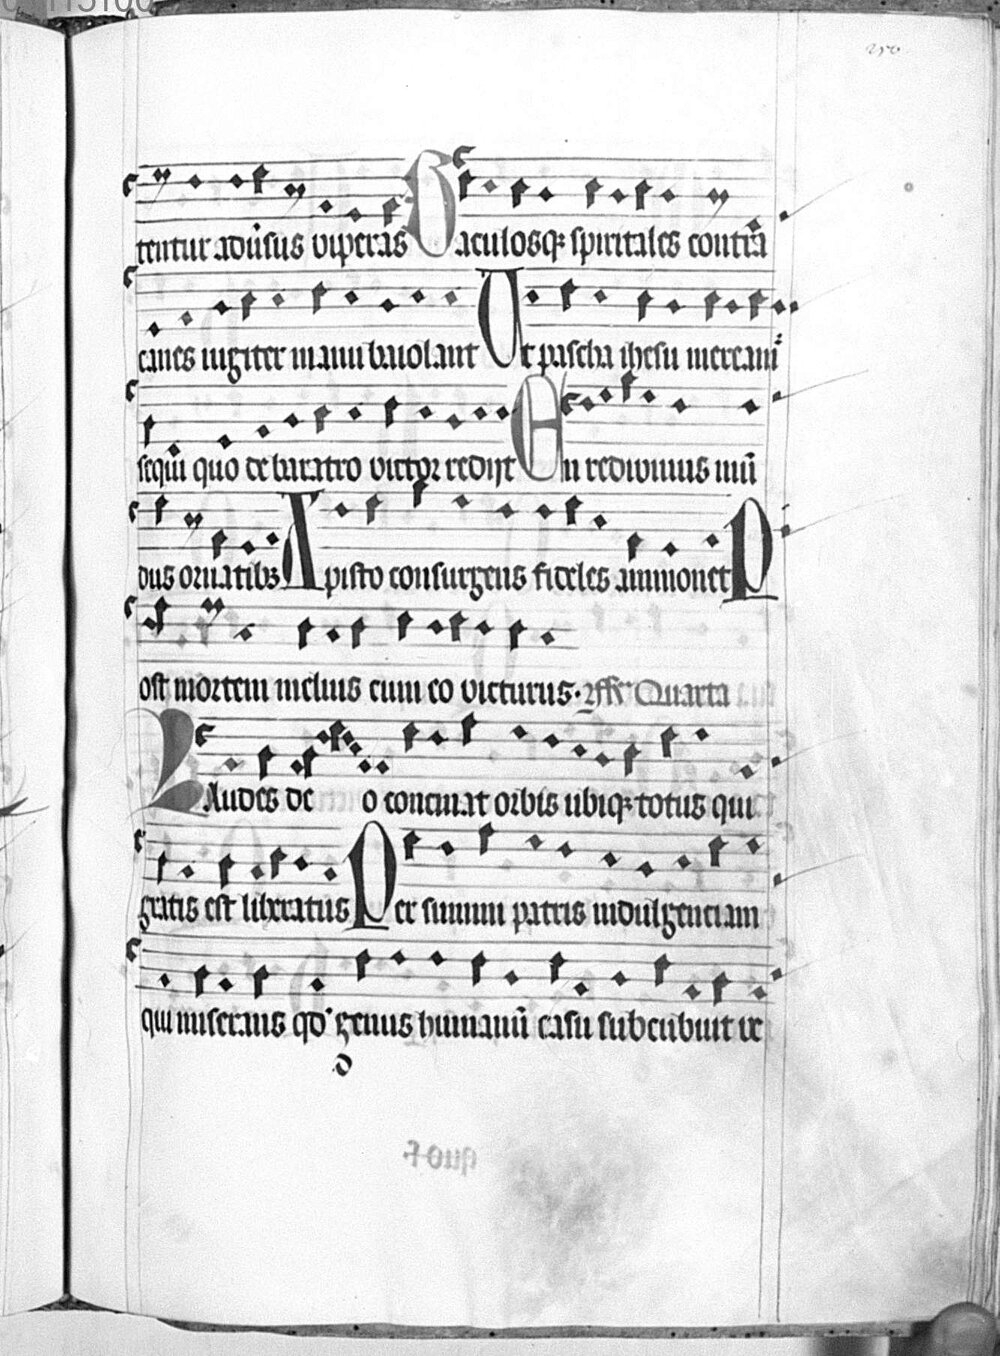 tentur adũsus viperas Baculosqꝫ spiritales contra
canes iugiter manu baiolant Ut pascha ihesu mereamᷣ
sequi quo de baratro victor redijt En rediviuus mũ
dus ornatibꝫ A pisto consurgens fideles ammonet P
ost mortem melius cum eo victurus. Quarta
Laudes deo concinat orbis ubiqꝫ totus qui
gratis est liberatus Per summi patris indulgenciam
qui miserans qd' genus humanũ casu subcubuit ve